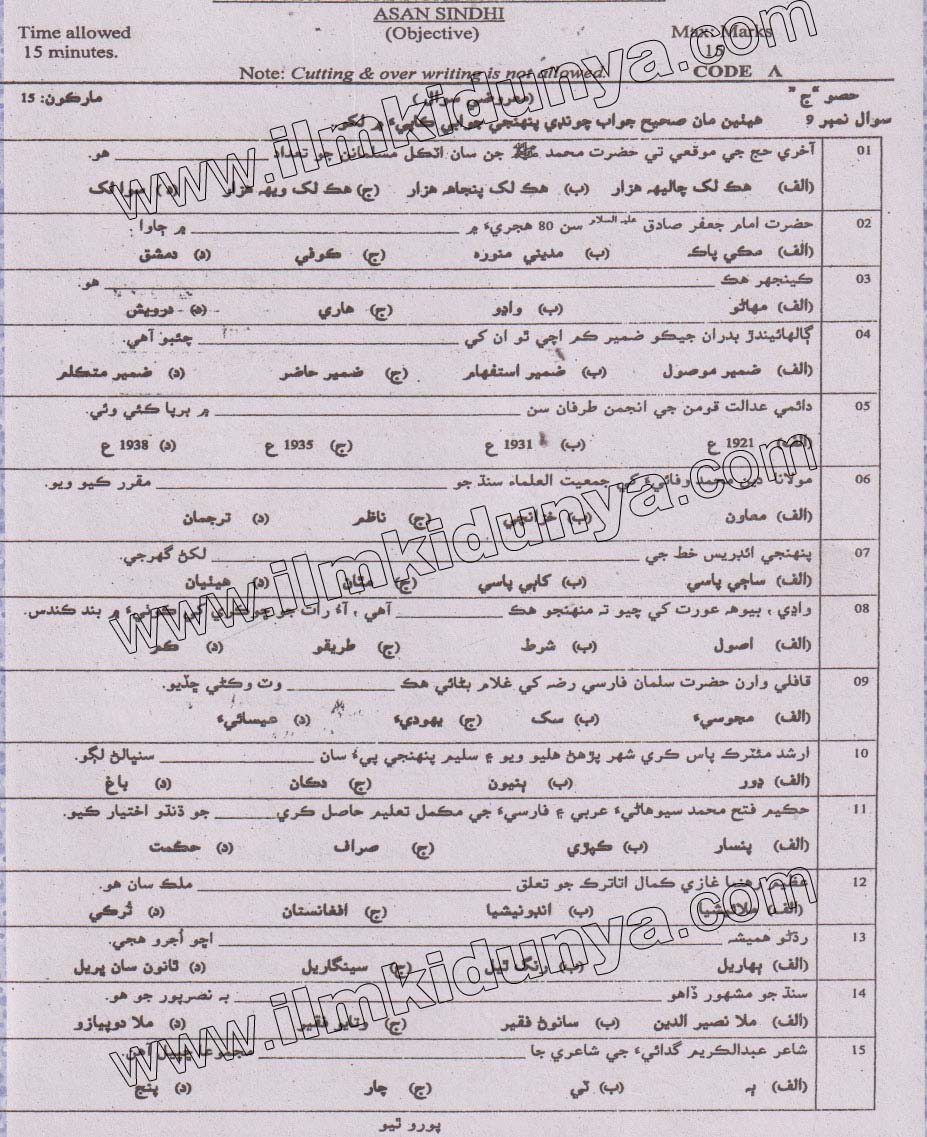 ASAN SINDHI
Time allowed (Objective) Max: Marks
15 minutes. 15
Note: Cutting & over writing is not allowed. CODE A
حصو “ج” (معروضي سوال) مارڪون: 15
سوال نمبر 9 هيٺين مان صحيح جواب چونڊي پنهنجي جوابي ڪاپيءَ ۾ لکو.
01 آخري حج جي موقعي تي حضرت محمد ﷺ جن سان اٽڪل مسلمانن جو تعداد ________ هو.
(الف) هڪ لک چاليهه هزار (ب) هڪ لک پنجاهه هزار (ج) هڪ لک ويهه هزار (د) سوا لک
02 حضرت امام جعفر صادق عليہ السلام سن 80 هجريءَ ۾ ________ ۾ ڄاوا.
(الف) مڪي پاڪ (ب) مديني منوره (ج) ڪوفي (د) دمشق
03 ڪينجهر هڪ ________ هو.
(الف) مهاڻو (ب) واڍو (ج) هاري (د) درويش
04 ڳالهائيندڙ بدران جيڪو ضمير ڪم اچي ٿو ان کي ________ چئبو آهي.
(الف) ضمير موصول (ب) ضمير استفهام (ج) ضمير حاضر (د) ضمير متڪلم
05 دائمي عدالت قومن جي انجمن طرفان سن ________ ۾ برپا ڪئي وئي.
(الف) 1921 ع (ب) 1931 ع (ج) 1935 ع (د) 1938 ع
06 مولانا دين محمد وفائيءَ کي جمعيت العلماء سنڌ جو ________ مقرر ڪيو ويو.
(الف) معاون (ب) خزانچي (ج) ناظم (د) ترجمان
07 پنهنجي ائڊريس خط جي ________ لکڻ گهرجي.
(الف) ساڄي پاسي (ب) کاٻي پاسي (ج) مٿان (د) هيٺيان
08 واڍي، بيوهه عورت کي چيو تہ منهنجو هڪ ________ آهي، آءٌ رات جو ڇوڪري کي ڪوٺيءَ ۾ بند ڪندس.
(الف) اصول (ب) شرط (ج) طريقو (د) ڪم
09 قافلي وارن حضرت سلمان فارسي رضه کي غلام بڻائي هڪ ________ وٽ وڪڻي ڇڏيو.
(الف) مجوسيءَ (ب) سک (ج) يهوديءَ (د) عيسائيءَ
10 ارشد مئٽرڪ پاس ڪري شهر پڙهڻ هليو ويو ۽ سليم پنهنجي پيءَ سان ________ سنڀالڻ لڳو.
(الف) ڍور (ب) ٻنيون (ج) دڪان (د) باغ
11 حڪيم فتح محمد سيوهاڻيءَ عربي ۽ فارسيءَ جي مڪمل تعليم حاصل ڪري ________ جو ڌنڌو اختيار ڪيو.
(الف) پنسار (ب) ڪپڙي (ج) صراف (د) حڪمت
12 عظيم رهنما غازي ڪمال اتاترڪ جو تعلق ________ ملڪ سان هو.
(الف) ملائيشيا (ب) انڊونيشيا (ج) افغانستان (د) تُرڪي
13 رڌڻو هميشہ ________ اڇو اُجرو هجي.
(الف) ٻهاريل (ب) رنگ ٿيل (ج) سينگاريل (د) ٿانون سان ڀريل
14 سنڌ جو مشهور ڏاهو ________ بہ نصرپور جو هو.
(الف) ملا نصير الدين (ب) سانوڻ فقير (ج) وتايو فقير (د) ملا دوپيازو
15 شاعر عبدالڪريم گدائيءَ جي شاعري جا ________ مجموعا ڇپيل آهن.
(الف) ٻہ (ب) ٽي (ج) چار (د) پنج
پورو ٿيو
www.ilmkidunya.com
www.ilmkidunya.com
www.ilmkidunya.com